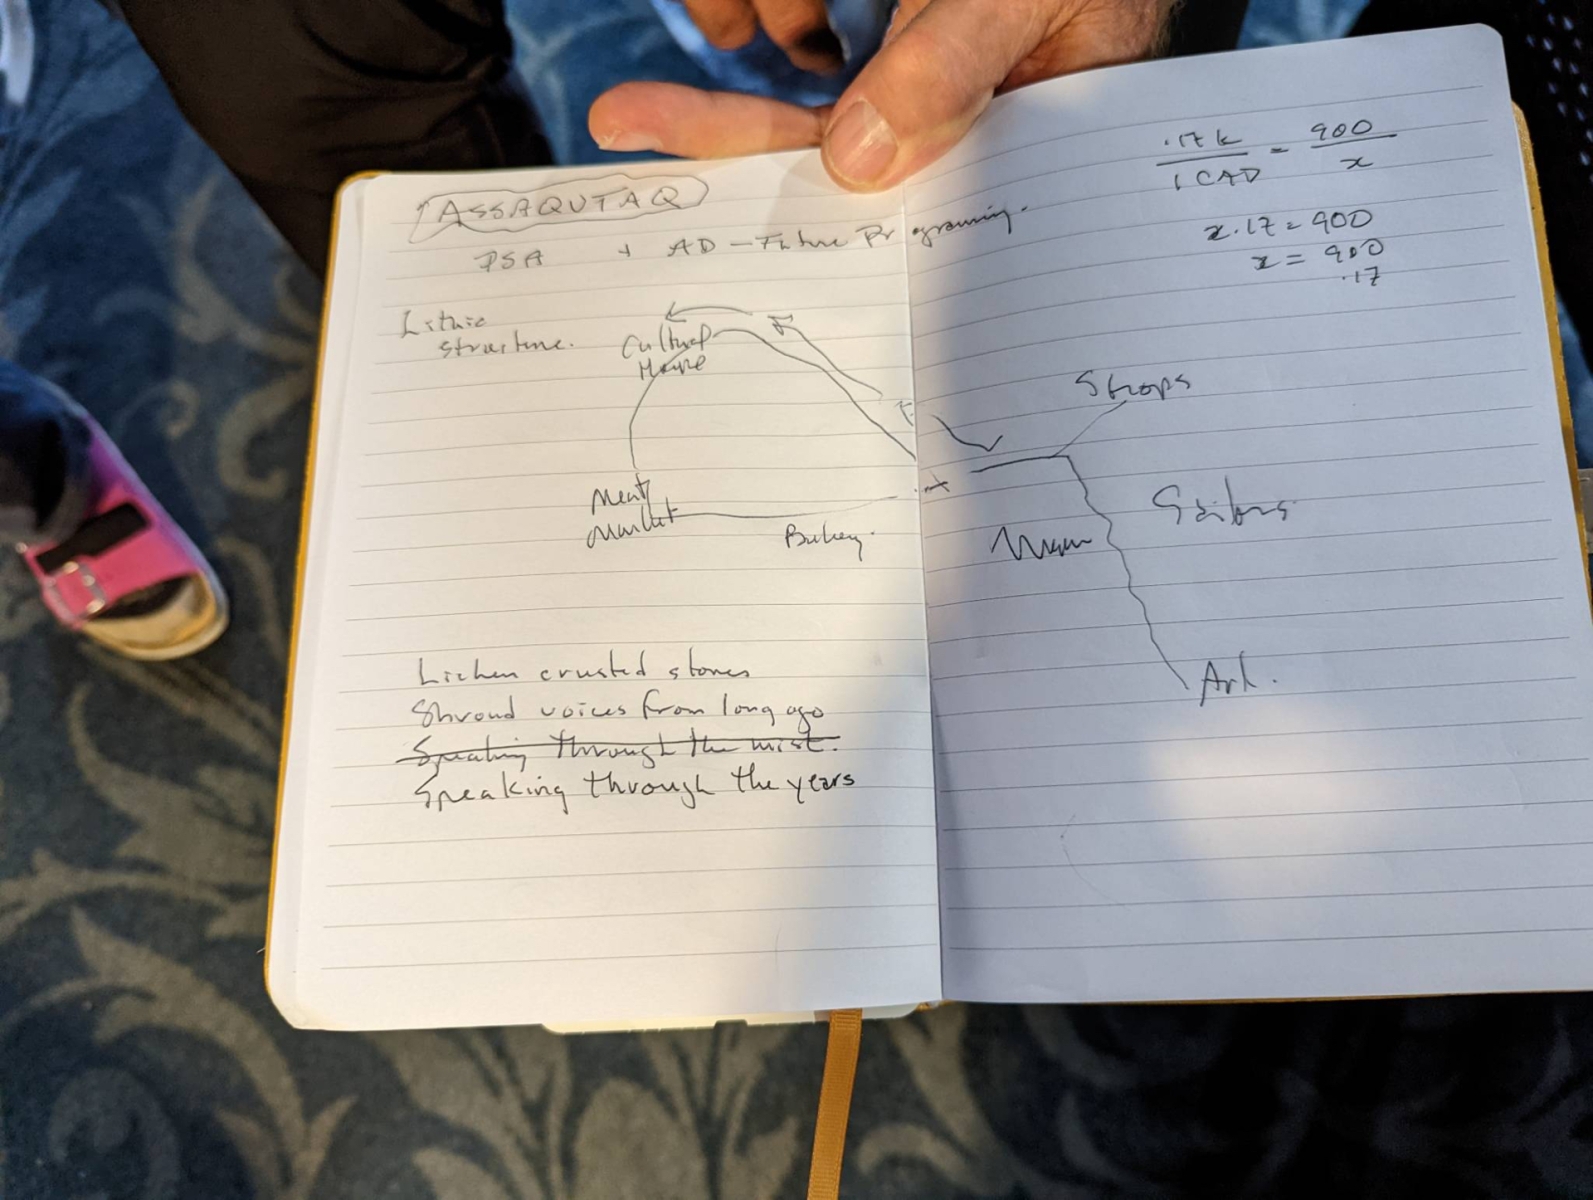 ASSAQUTAQ
PSA + AD - Future Programming.
Lithic
structure.
Cultural
House
Meat
Market
Lichen crusted stones
Shroud voices from long ago
Speaking through the mist.
Speaking through the years
.17 k / 1 CAD = 900 / x
x .17 = 900
x = 900
.17
Shops